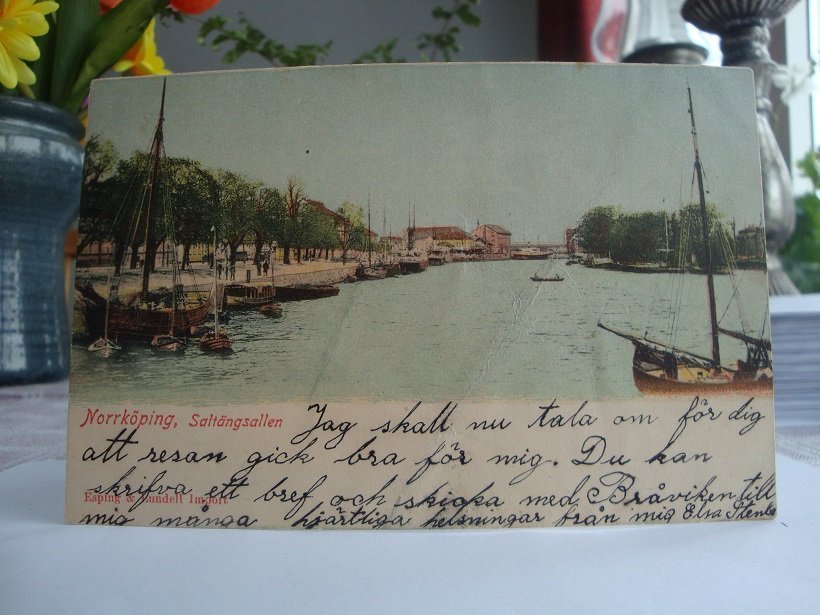 Norrköping, Saltängsallen
Jag skall nu tala om för dig
att resan gick bra för mig. Du kan
skrifva ett bref och skicka med Bråviken till
Esping & Lundell Import
mig många hjärtliga helsningar från mig Elsa